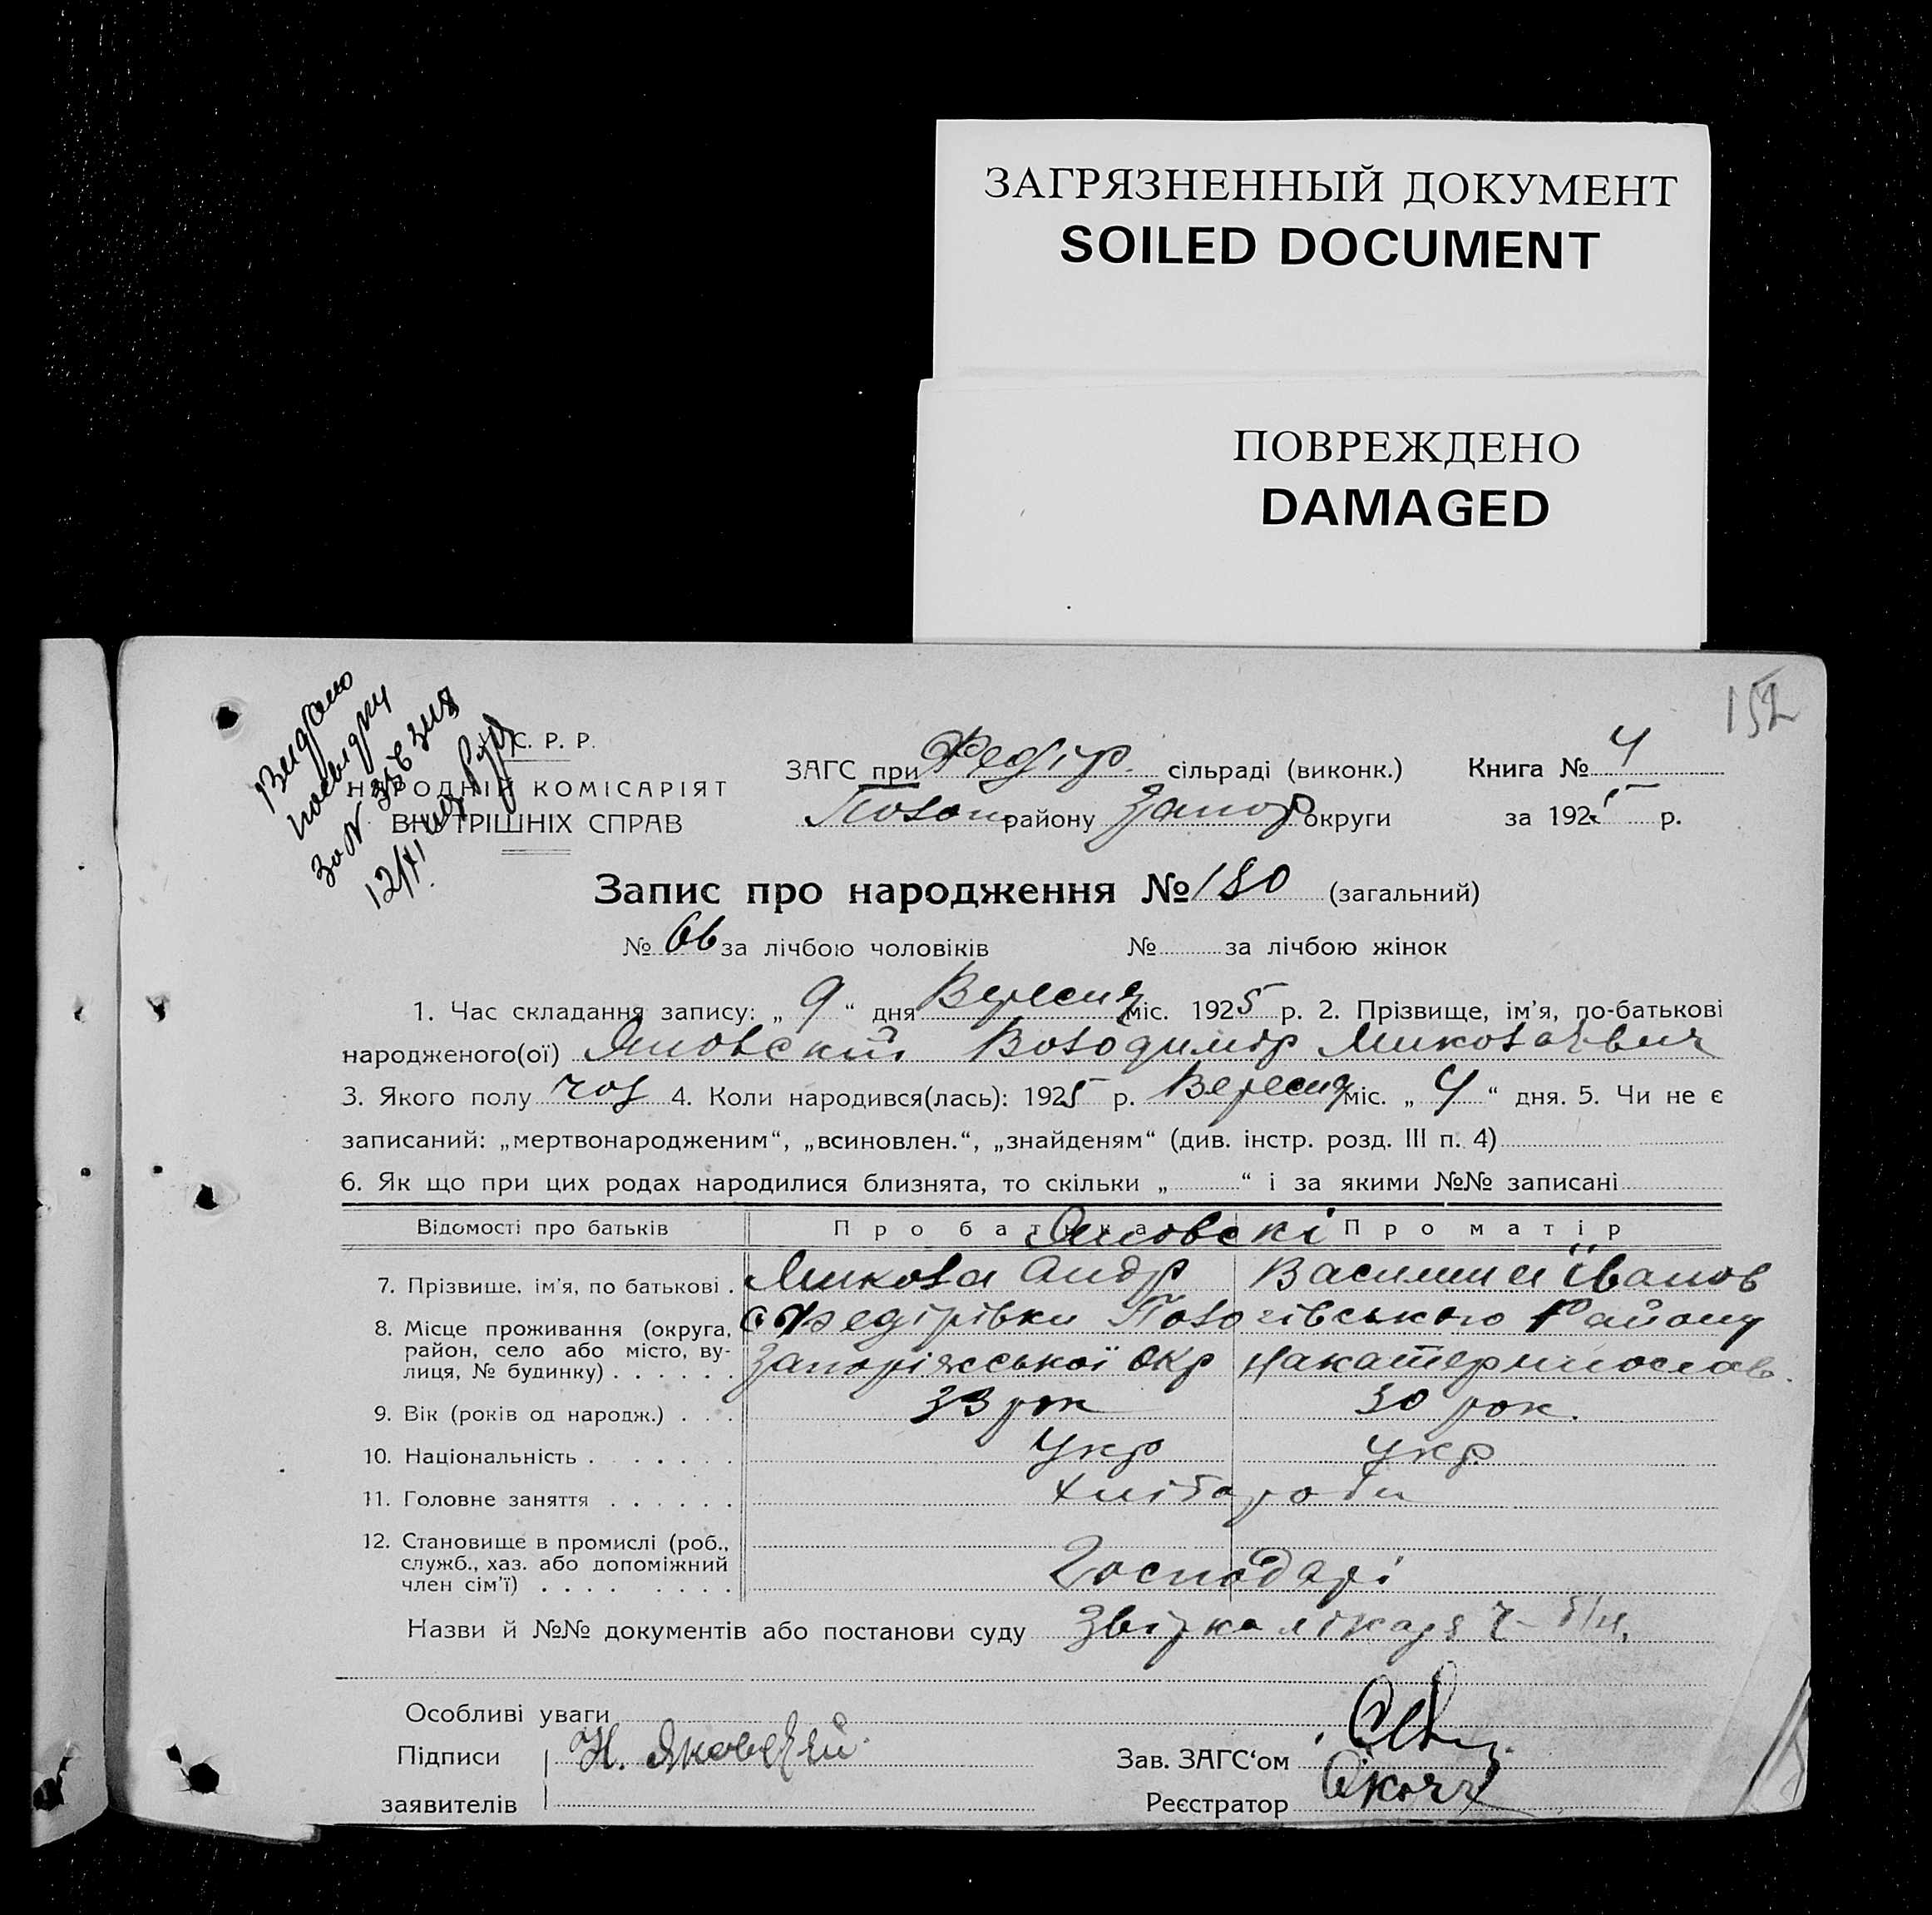 ЗАГРЯЗНЕННЫЙ ДОКУМЕНТ
SOILED DOCUMENT
ПОВРЕЖДЕНО
DAMAGED
152
Видано
посвідку
за №
12/XI
С. Р. Р.
НАРОДНІЙ КОМІСАРІЯТ
ВНУТРІШНІХ СПРАВ
ЗАГС при Федір. сільраді (виконк.) Книга № 4
Полог району Запор округи за 1925 р.
Запис про народження № 180 (загальний)
№ 66 за лічбою чоловіків № за лічбою жінок
1. Час складання запису: „ 9 “ дня Вересня міс. 1925 р. 2. Прізвище, ім’я, по-батькові
народженого(ої) Яновский Володимір Миколаєвич
3. Якого полу чол 4. Коли народився(лась): 1925 р. Вересня міс. „ 4 “ дня. 5. Чи не є
записаний: „мертвонародженим“, „всиновлен.“, „знайденям“ (див. інстр. розд. III п. 4)
6. Як що при цих родах народилися близнята, то скільки „ “ і за якими №№ записані
Відомості про батьків Про батька Яновскі Про матір
7. Прізвище, ім’я, по батькові . Микола Андр Василина Іванов
8. Місце проживання (округа, с Федірівки Пологівського Району
район, село або місто, ву-
лиця, № будинку) . . . . . . Запоріжської Окр Накатеринослав.
9. Вік (років од народж.) . . . 33 рок 30 рок.
10. Національність . . . . . . . Укр укр
11. Головне заняття . . . . . . Хлібороби
12. Становище в промислі (роб.,
служб., хаз. або допоміжний
член сім’ї) . . . . . . . . Господарі
Назви й №№ документів або постанови суду Звірка лікаря б/н.
Особливі уваги
Підписи Н.
Зав. ЗАГС‘ом
заявителів
Реєстратор